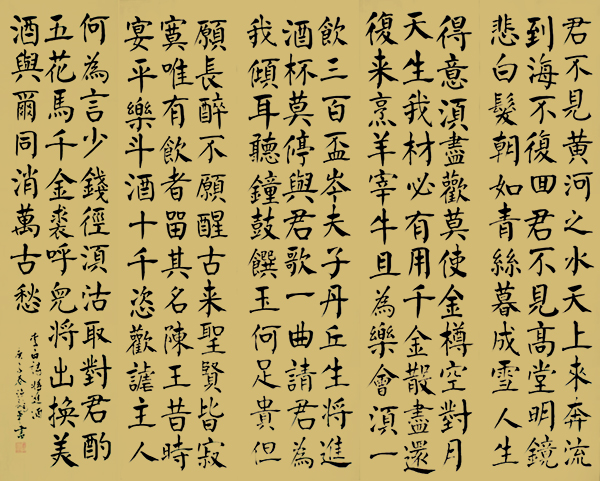 君不見黄河之水天上來奔流
到海不復回君不見高堂明鏡
悲白髮朝如青絲暮成雪人生
得意湏盡歡莫使金樽空對月
天生我材必有用千金散盡還
復来烹羊宰牛且為樂會湏一
飲三百盃岑夫子丹丘生将進
酒杯莫停與君歌一曲請君為
我傾耳聽鐘鼓饌玉何足貴但
願長醉不願醒古来聖賢皆寂
寞唯有飲者留其名陳王昔時
宴平樂斗酒十千恣歡謔主人
何為言少錢徑湏沽取對君酌
五花馬千金裘呼兒将出換美
酒與爾同消萬古愁
李白詩将進酒
庚子春書